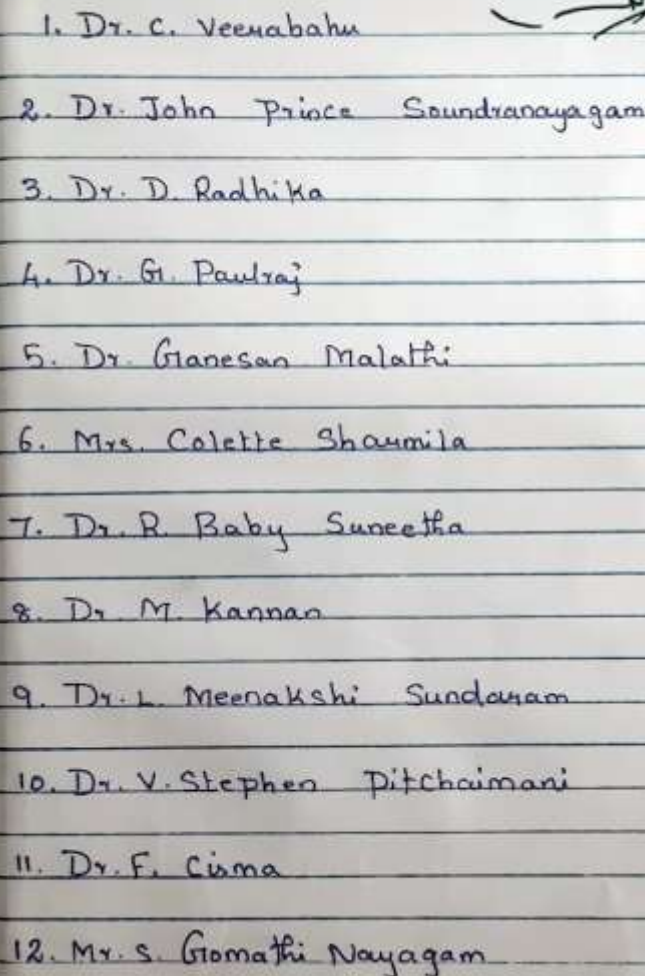 1. Dr. C. Veerabahu
2. Dr. John Prince Soundranayagam
3. Dr. D. Radhika
4. Dr. G. Paulraj
5. Dr. Ganesan Malathi
6. Mrs. Colette Sharmila
7. Dr. R. Baby Suneetha
8. Dr M. Kannan
9. Dr. L. Meenakshi Sundaram
10. Dr. V. Stephen Pitchaimani
11. Dr. F. Cisma
12. Mr. S. Gomathi Nayagam